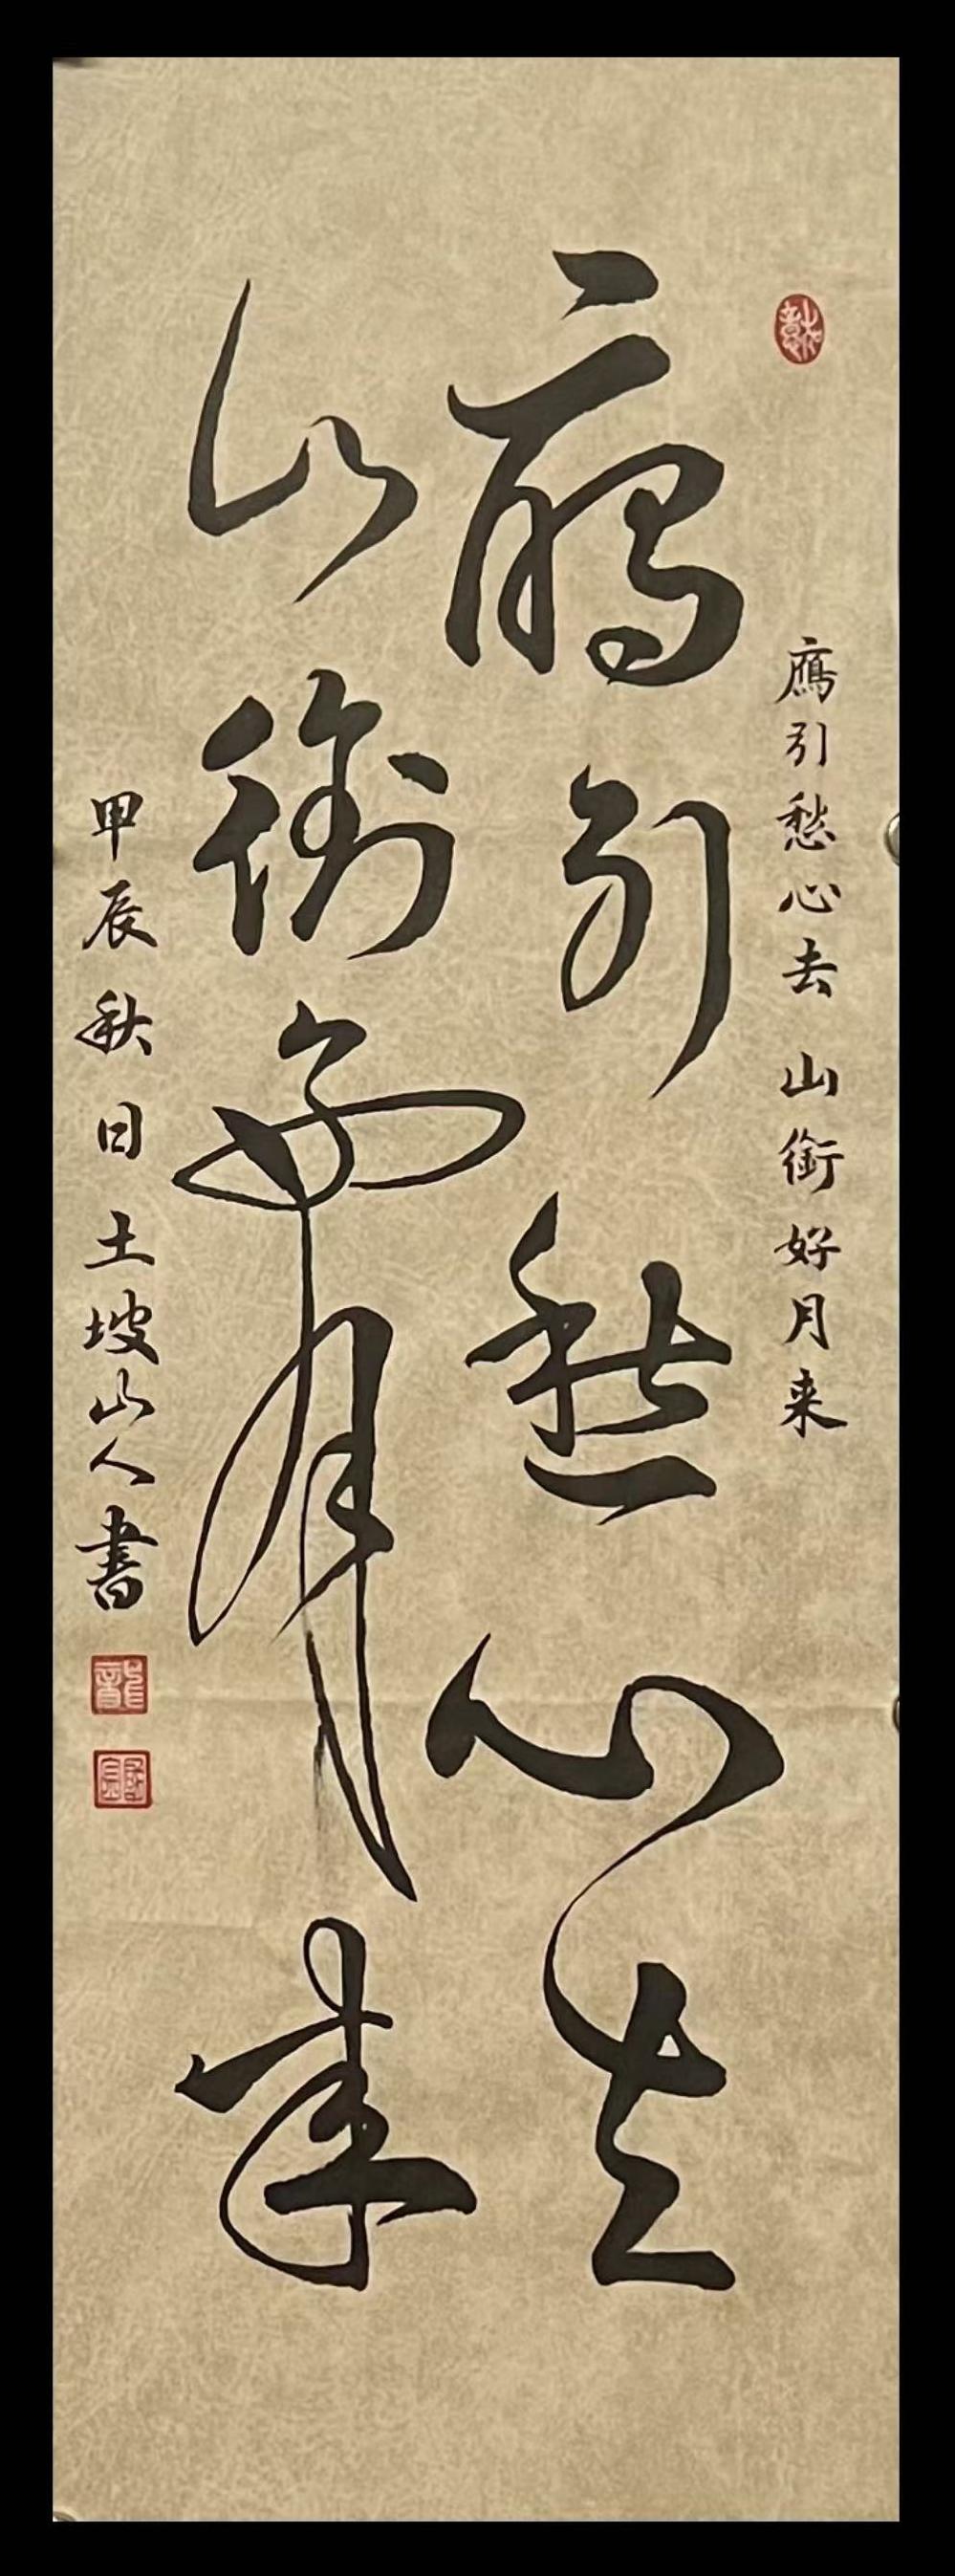 如意
鴈引愁心去 山銜好月来
鴈引愁心去
山銜好月来
甲辰秋日土坡山人書